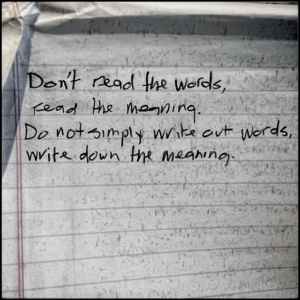 Don't read the words,
read the meaning.
Do not simply write out words,
write down the meaning.